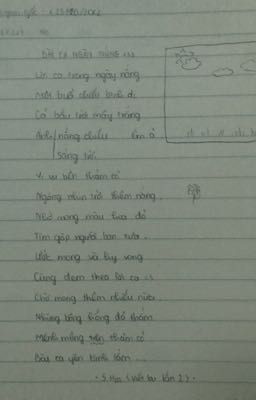 BÀI CA NGÀY NẮNG
Lời ca trong ngày nắng
Một buổi chiều bước đi
Có bầu trời mây trắng
Ánh nắng chiều êm ả
sáng tới
Vi vu bên thảm cỏ
Ngóng nhìn trời thêm nàng
Nhớ mong màu tươi đỏ
Tìm gặp người bạn xưa.
Ước mong và hy vọng
Cùng đem theo lời ca
Chờ mong thêm nhiều nữa
Những bông hồng đỏ thắm
Mênh mông trên thảm cỏ
Bài ca yên bình lắm ...
(Viết tay lần 2)